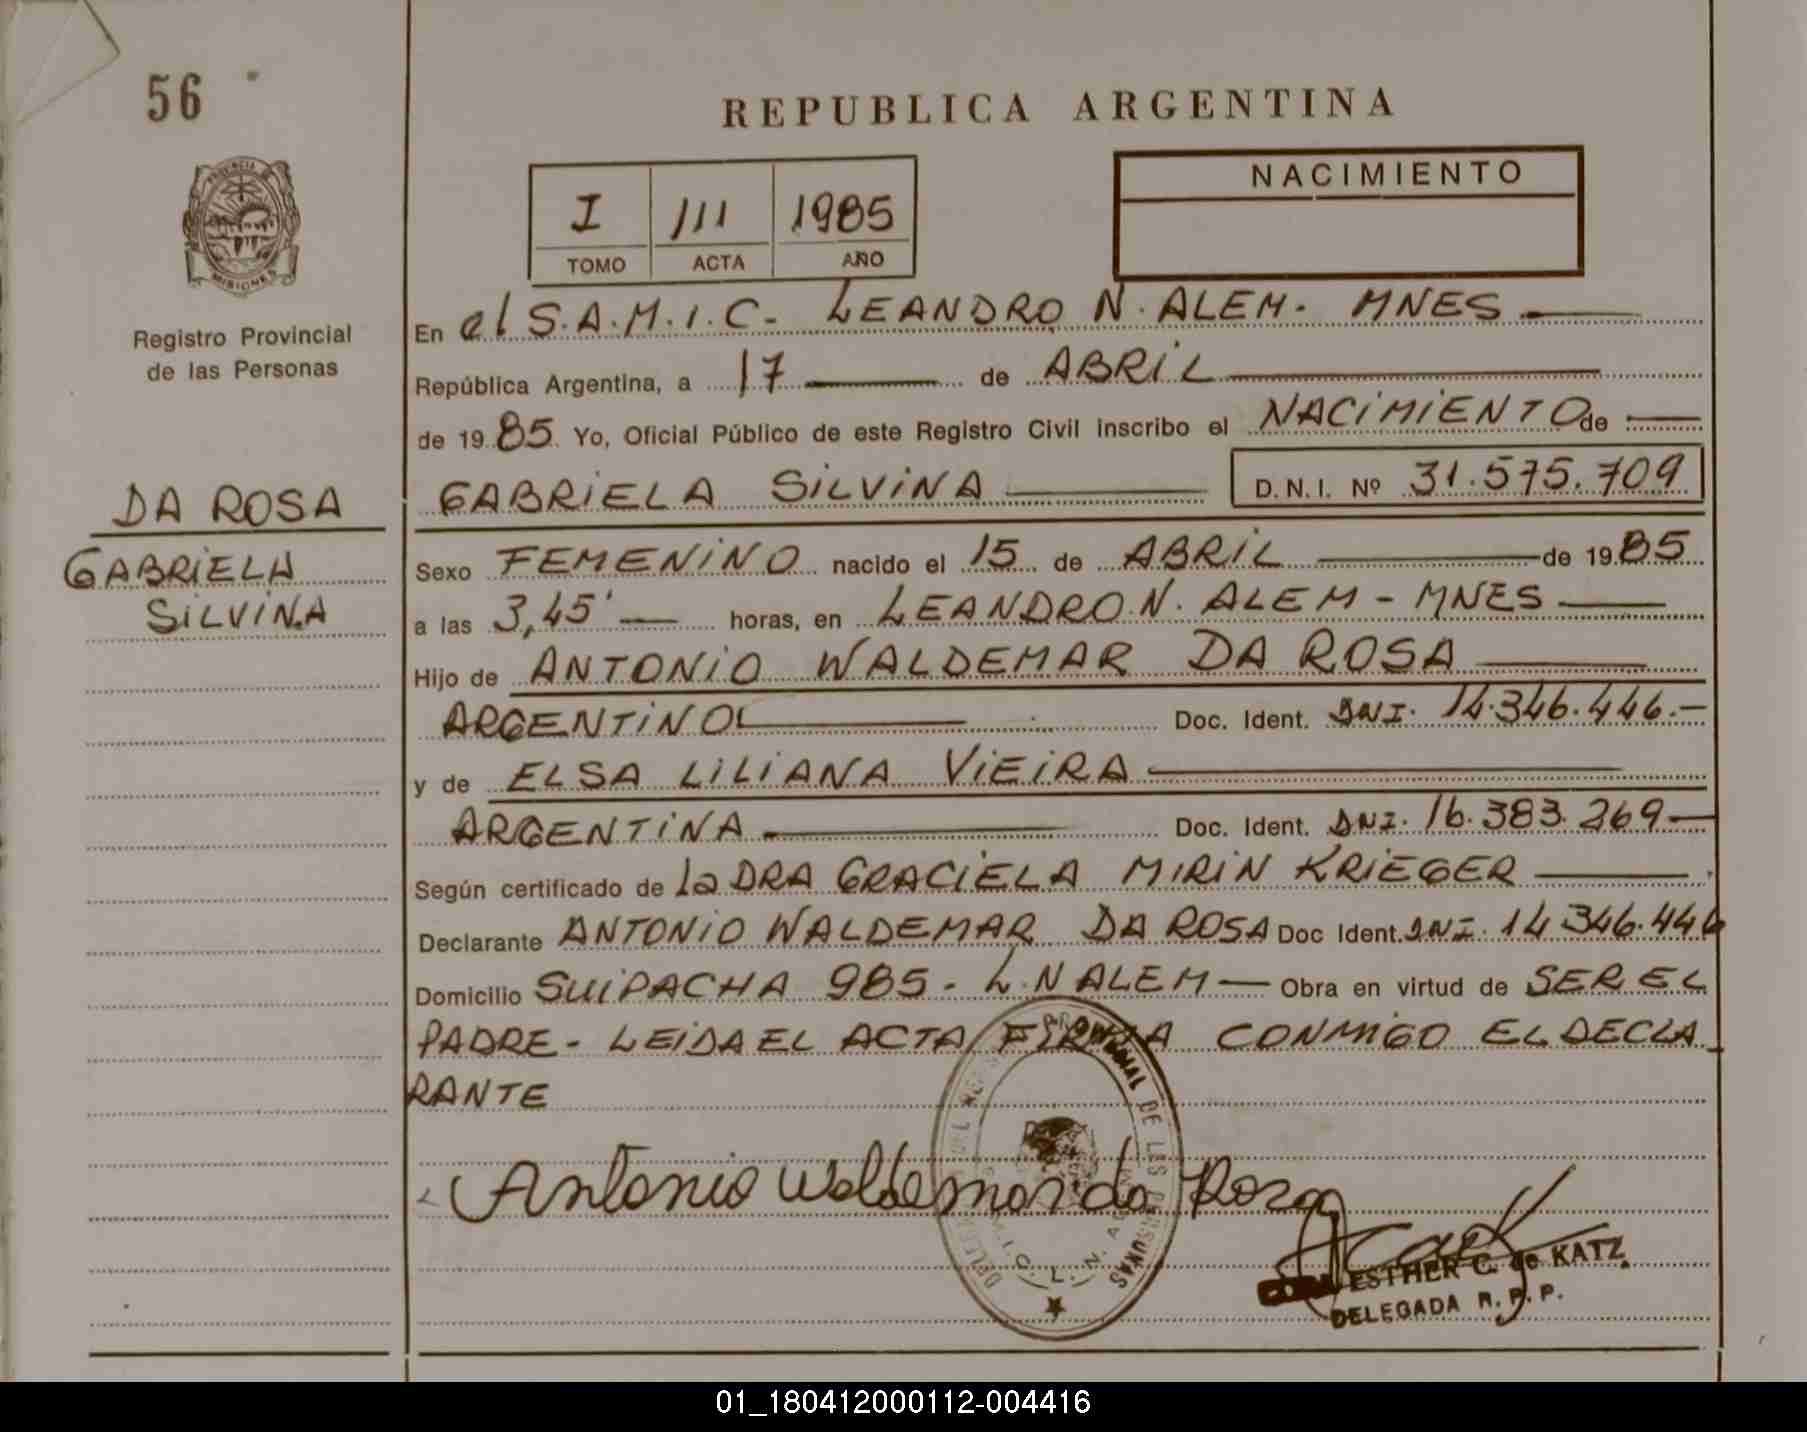 56
REPUBLICA ARGENTINA
NACIMIENTO
I 111 1985
TOMO ACTA AÑO
PROVINCIA
MISIONES
Registro Provincial
de las Personas
DA ROSA
GABRIELA
SILVINA
En el S.A.M.I.C. - LEANDRO N. ALEM - MNES
República Argentina, a 17 de ABRIL
de 1985 Yo, Oficial Público de este Registro Civil inscribo el NACIMIENTO de
GABRIELA SILVINA D.N.I. Nº 31.575.709
Sexo FEMENINO nacido el 15 de ABRIL de 1985
a las 3,45' horas, en LEANDRO N. ALEM - MNES
Hijo de ANTONIO WALDEMAR DA ROSA
ARGENTINO Doc. Ident. DNI. 14.346.446.-
y de ELSA LILIANA VIEIRA
ARGENTINA Doc. Ident. DNI. 16.383.269-
Según certificado de la DRA GRACIELA MIRIN KRIEGER
Declarante ANTONIO WALDEMAR DA ROSA Doc Ident. DNI. 14 346.446
Domicilio SUIPACHA 985 - L. N ALEM - Obra en virtud de SER EL
PADRE - LEIDA EL ACTA FIRMA CONMIGO EL DECLA
RANTE
Antonio Waldemar da Rosa
ESTHER C. de KATZ
DELEGADA R. P. P.
01_180412000112-004416